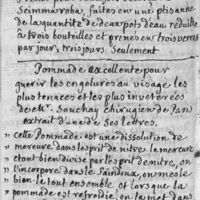 Seimmaroba, faites en une ptisanne
de la quantité de deux pots d'eau réduitte
à trois bouteilles et prenés en trois verres
par jour, trois jours seulement
Pommade excellente pour
guerir les engolures au visage les
plus tenaces et les plus inveterées
de Mr. Souchay Chirugien de Paris
extrait d'une de ses lettres,
" cette Pommade est une dissolution de
" mercure dans l'esprit de nitre. le mercure
" etant bien divisé par l'esprit de nitre, on
" l'incorpore dans le saindoux, on mesle
" bien le tout ensemble et lorsque la
" pommade est refroidie, on la met dans